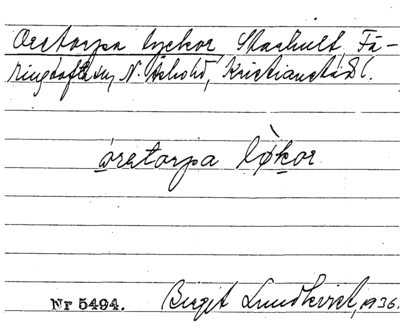 Oretorpa lyckor, Starhult, Fä-
ringtofta sn, N. Åsbohd, Kristianst. l.
òretorpa lø̀kor
Nr 5494. Birgit Lundkvist, 1936.